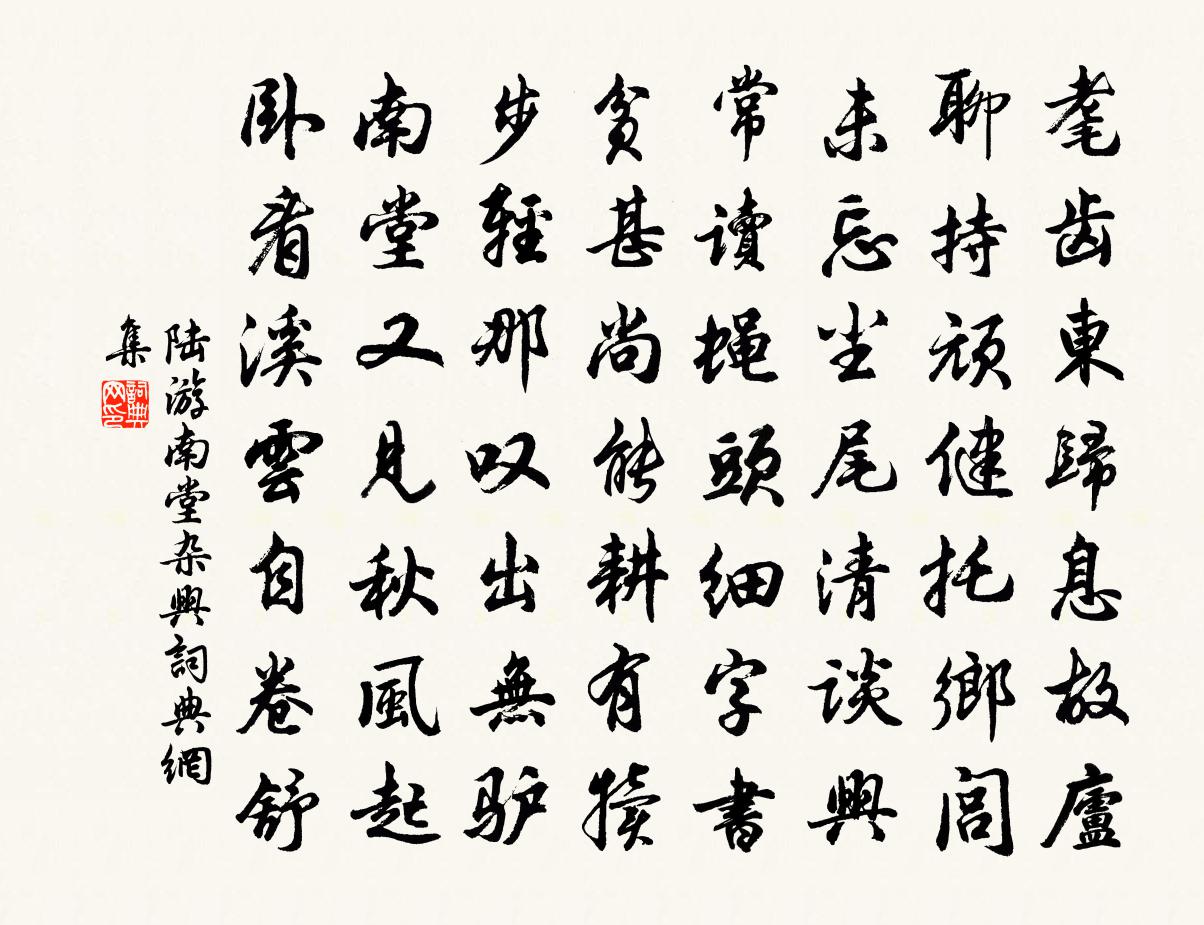 耄齿東歸息故廬
聊持頑健托鄉閭
未忘坐尾清談興
常讀蝇頭細字書
貧甚尚能耕有犢
步輕那叹出無驴
南堂又見秋風起
卧看溪雲自卷舒
陆游南堂杂興詞典網
集
詞典
网印